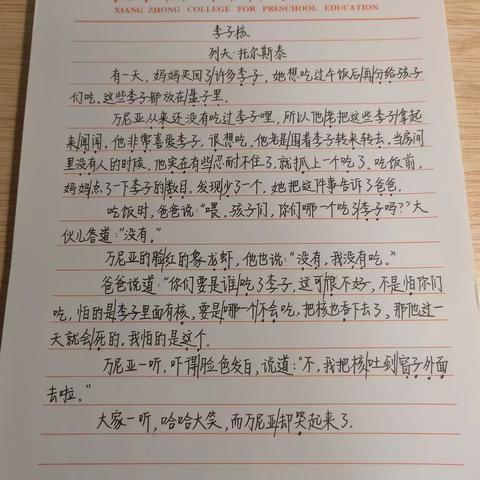 XIANG ZHONG COLLEGE FOR PRESCHOOL EDUCATION
李子核
列夫·托尔斯泰
有一天，妈妈买回了许多李子，她想吃过午饭后再分给孩子
们吃。这些李子都放在盘子里。
万尼亚从来还没有吃过李子哩，所以他老把这些李子拿起
来闻闻。他非常喜爱李子。很想吃。他老是围着李子转来转去。当房间
里没有人的时候，他实在有些忍耐不住了，就抓上一个吃了。吃饭前，
妈妈点了一下李子的数目，发现少了一个。她把这件事告诉了爸爸。
吃饭时，爸爸说："喂，孩子们，你们哪一个吃了李子吗？"大
伙儿答道："没有。"
万尼亚的脸红的象龙虾，他也说："没有，我没有吃。"
爸爸说道："你们要是谁吃了李子，这可很不好，不是怕你们
吃，怕的是李子里面有核，要是哪一个不会吃，把核也吞下去了，那他过一
天就会死的。我怕的是这个。
万尼亚一听，吓得脸色发白，说道："不，我把核吐到窗子外面
去啦。"
大家一听，哈哈大笑，而万尼亚却哭起来了。